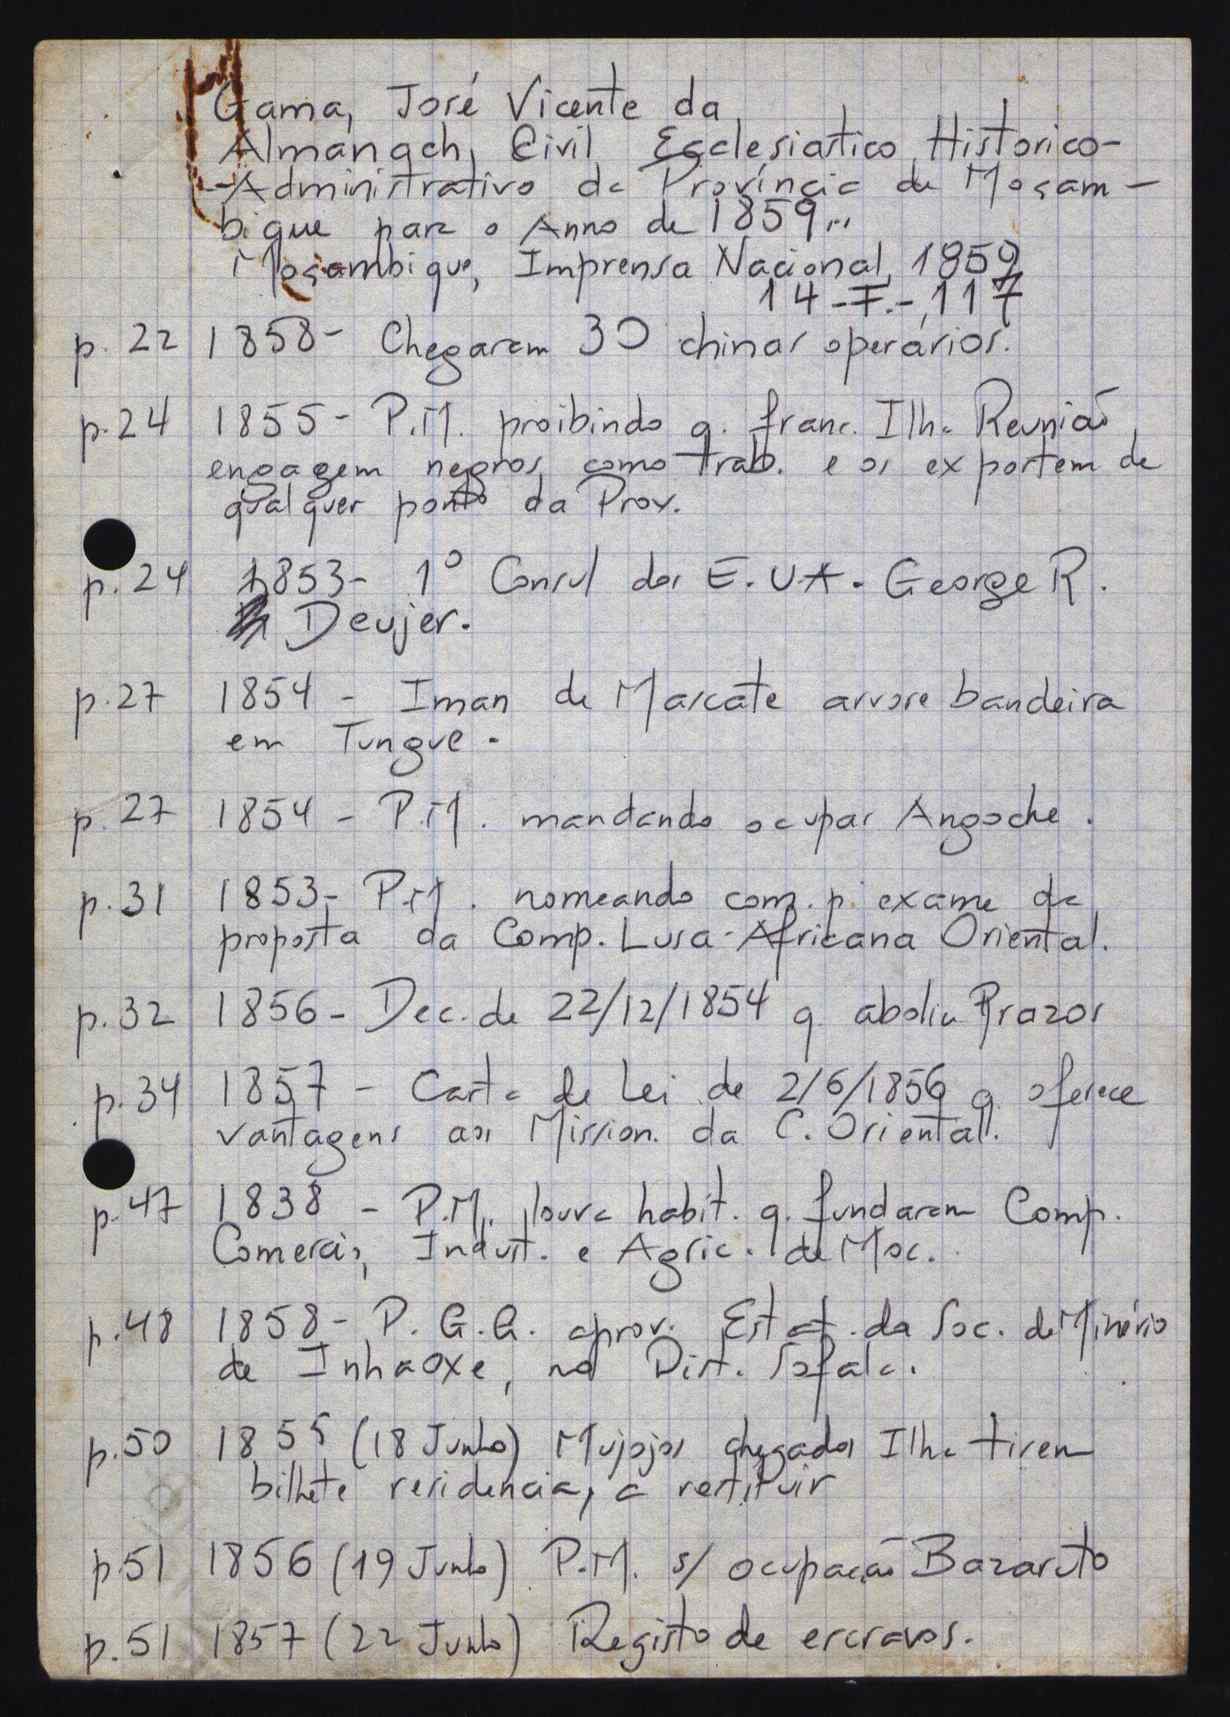 Gama, José Vicente da
Almanach, Civil, Ecclesiastico, Historico-
-Administrativo da Província de Moçam-
bique para o Anno de 1859...
Moçambique, Imprensa Nacional, 1859
14-F.-117
p. 22 1858- Chegaram 30 chinas operários.
p.24 1855- P.M. proibindo q. franc. Ilha Reunião
engagem negros como trab. e os exportem de
qualquer ponto da Prov.
p.24 1853- 1º Consul dos E.U.A. George R.
Deujer.
p.27 1854 - Iman de Mascate arvore bandeira
em Tungue.
p.27 1854 - P.M. mandando ocupar Angoche.
p.31 1853- P.M. nomeando com. p. exame da
proposta da Comp. Lusa-Africana Oriental.
p.32 1856- Dec. de 22/12/1854 q aboliu Prazos
p.34 1857 - Carta de Lei de 2/6/1856 q oferece
vantagens aos Mission. da C. Oriental.
p.47 1838 - P.M. louva habit. q. fundaram Comp.
Comercio, Indust. e Agric. de Moc.
p.48 1858- P. G.G. aprov. Estat. da Soc. de Minério
de Inhaoxe, no Dist. Sofala.
p.50 1855 (18 Junho) Mujojos chegados Ilha tirem
bilhete residencia, a restituir
p.51 1856 (19 Junho) P.M. s/ ocupação Bazaruto
p.51 1857 (22 Junho) Registo de escravos.